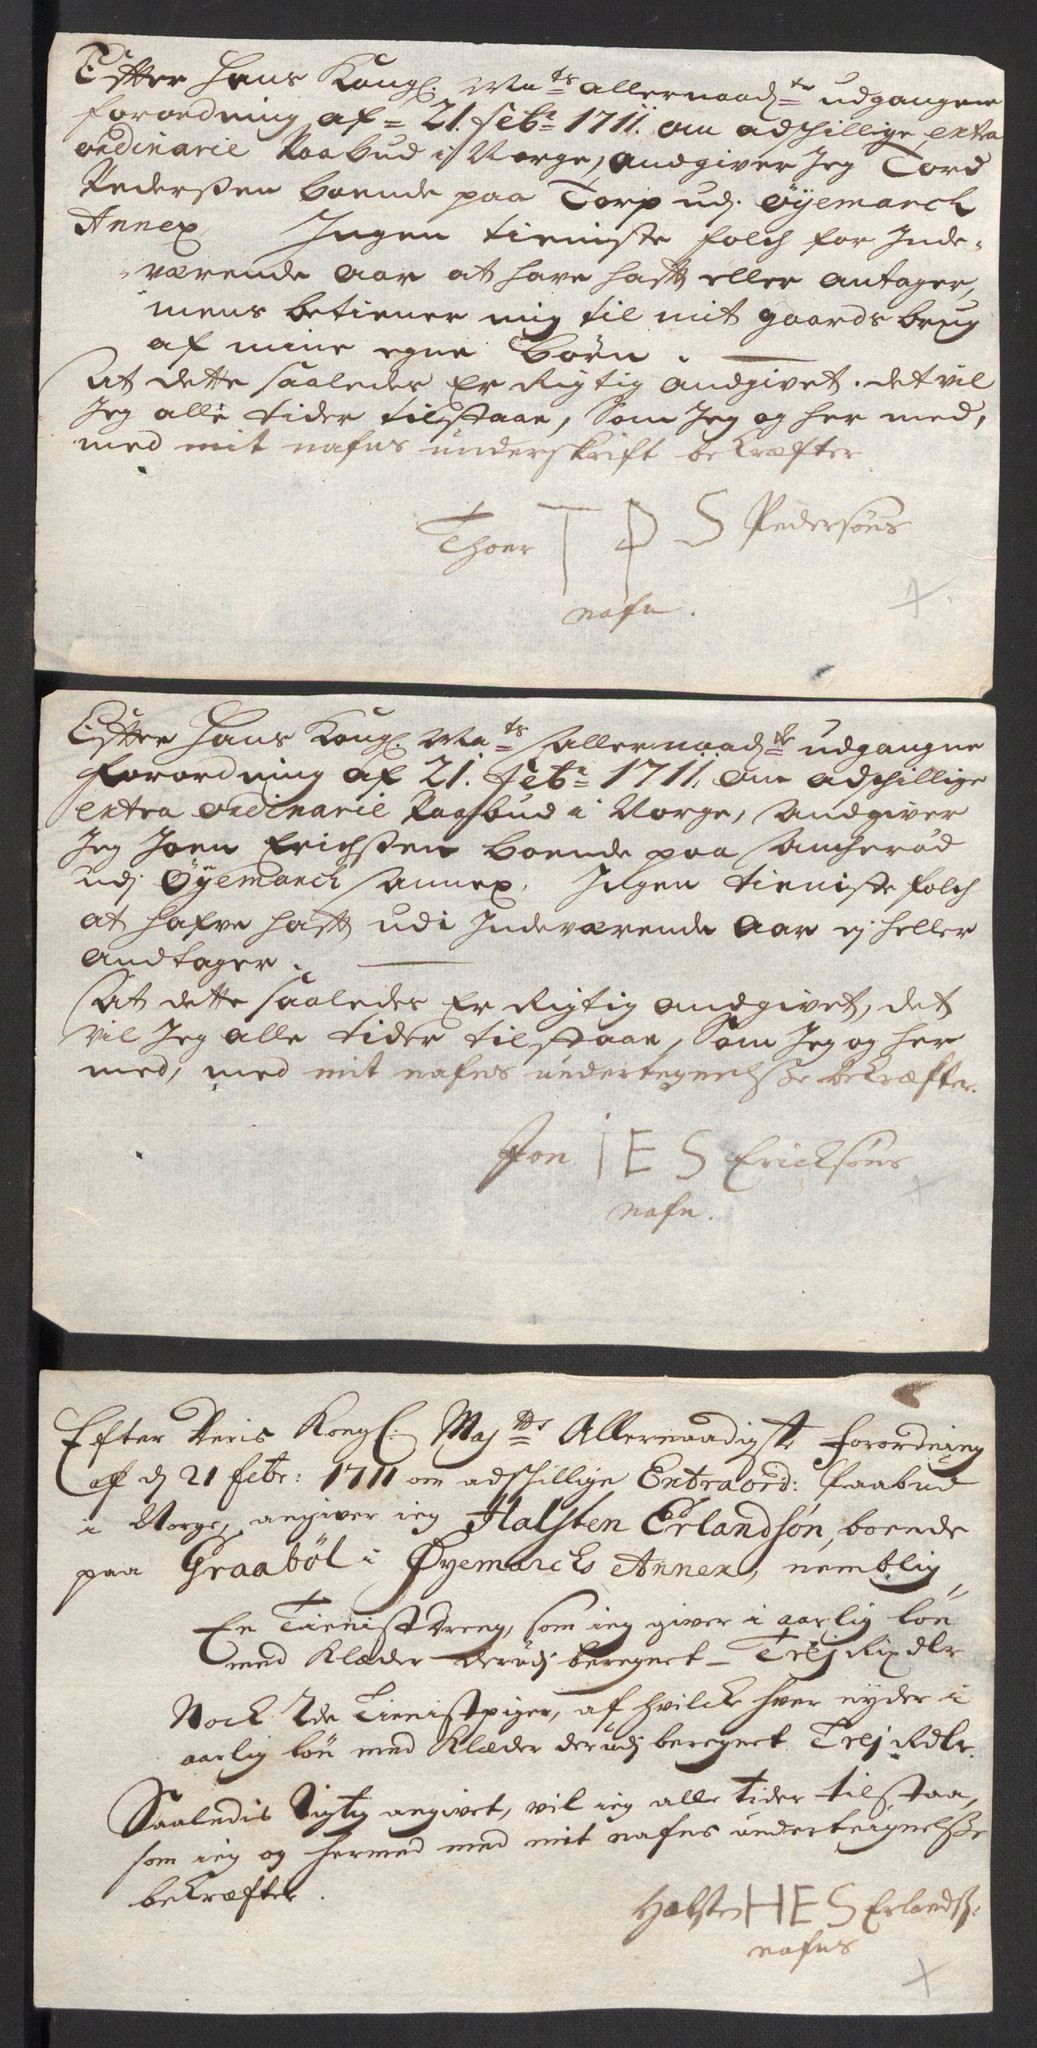 Efter Hans Kongl. Ma:ts allernaad:te udgangne
forordning af = 21. feb: 1711. om adschillige extra
ordinarie Paabud i Norge, andgiver Jeg Tord
Pederssen boende paa Torp udj Øyemarck
Annex, Ingen tieniste folch for Inde-
værende aar at have hafft eller antager,
mens betiener mig til mit gaards brug
af mine egne börn.
At dette saaledes Er Rigtig andgivet. det vil
Jeg alle tider tilstaar, Som Jeg og her med,
med mit nafns underskrift bekræfter
Thoer T P S Pedersöns
nafn.
Efter Hans Kongl. Ma:ts Allernaad:te udgangne
forordning af 21. feb: 1711. om adschillige
extra ordinarie Paabud i Norge, Andgiver
Jeg Joen Erichssen boende paa
udj Øyemarck Annex, Ingen tieniste folch
at hafve hafft udi Indeværende aar ej heller
andtager.
At dette saaledes Er Rigtig andgivet, det
vil Jeg alle tider tilstaar, Som Jeg og her
med, med mit nafns undertegnelsse bekræfter.
Jon I E S Ericksöns
nafn.
Efter Deris Kongl: Maj:tts Allernaadigste forordning
af d 21 febr: 1711 om adschillige Extraord: Paabud
i Norge, angiver ieg Halsten Erlandsøn, boende
paa Graabøl i Øyemarcks Annex, nemblig
En Tienistdreng, som ieg giver i aarlig løn
med Klæder derudj beregnet - Trej Rixdlr
Nock 2de Tienistpiger, af hvilcke hver nyder i
aarlig løn med Klæder derudj beregnet Trej Rdlr.
Saaledis Rigtig angivet, vil ieg alle tider tilstaa,
som ieg og hermed med mit nafns underteignelsse
bekræfter.
Halsten H E S Erlandss:
nafns